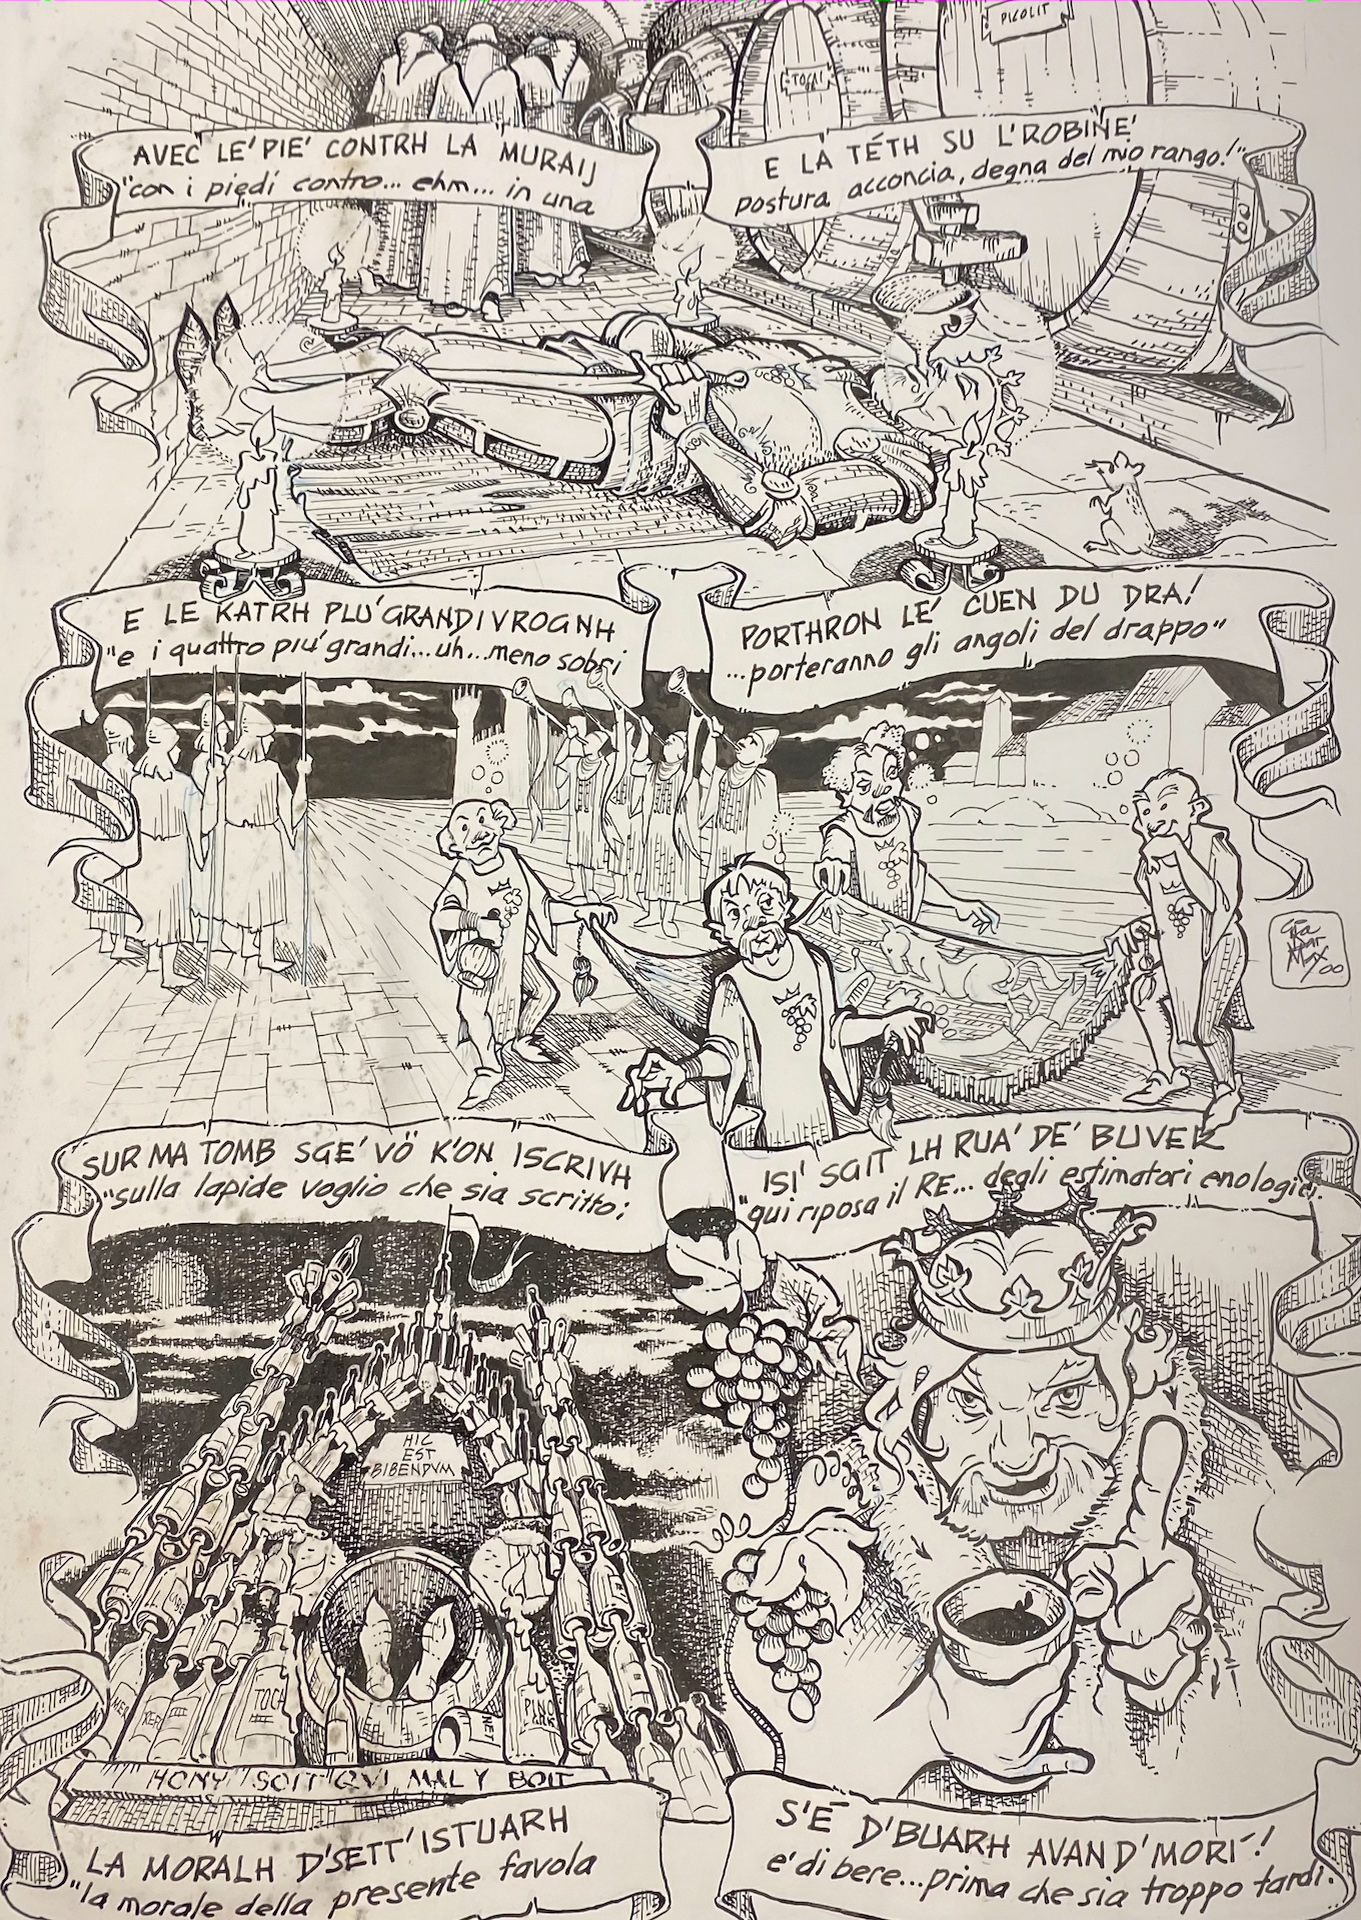 PICOLIT
TOCAI
AVEC LE' PIE' CONTRH LA MURAIJ
"con i piedi contro... ehm... in una
E LÀ TÉTH SU L'ROBINE'
postura acconcia, degna del mio rango!"
E LE KATRH PLU' GRANDIVROGNH
"e i quattro piu' grandi...uh...meno sobri
PORTHRON LE' CUEN DU DRA!
...porteranno gli angoli del drappo"
00
SUR MA TOMB SGE' VÖ K'ON ISCRIVH
"sulla lapide voglio che sia scritto:
ISI' SGIT LH RUA' DE' BUVER
"qui riposa il RE... degli estimatori enologici.
HIC
EST
BIBENDVM
MER
TOCA
PINO
HONY SOIT QVI MAL Y BOIT
LA MORALH D'SETT'ISTUARH
"la morale della presente favola
S'É D'BUARH AVAN D'MORI'!
e' di bere...prima che sia troppo tardi.